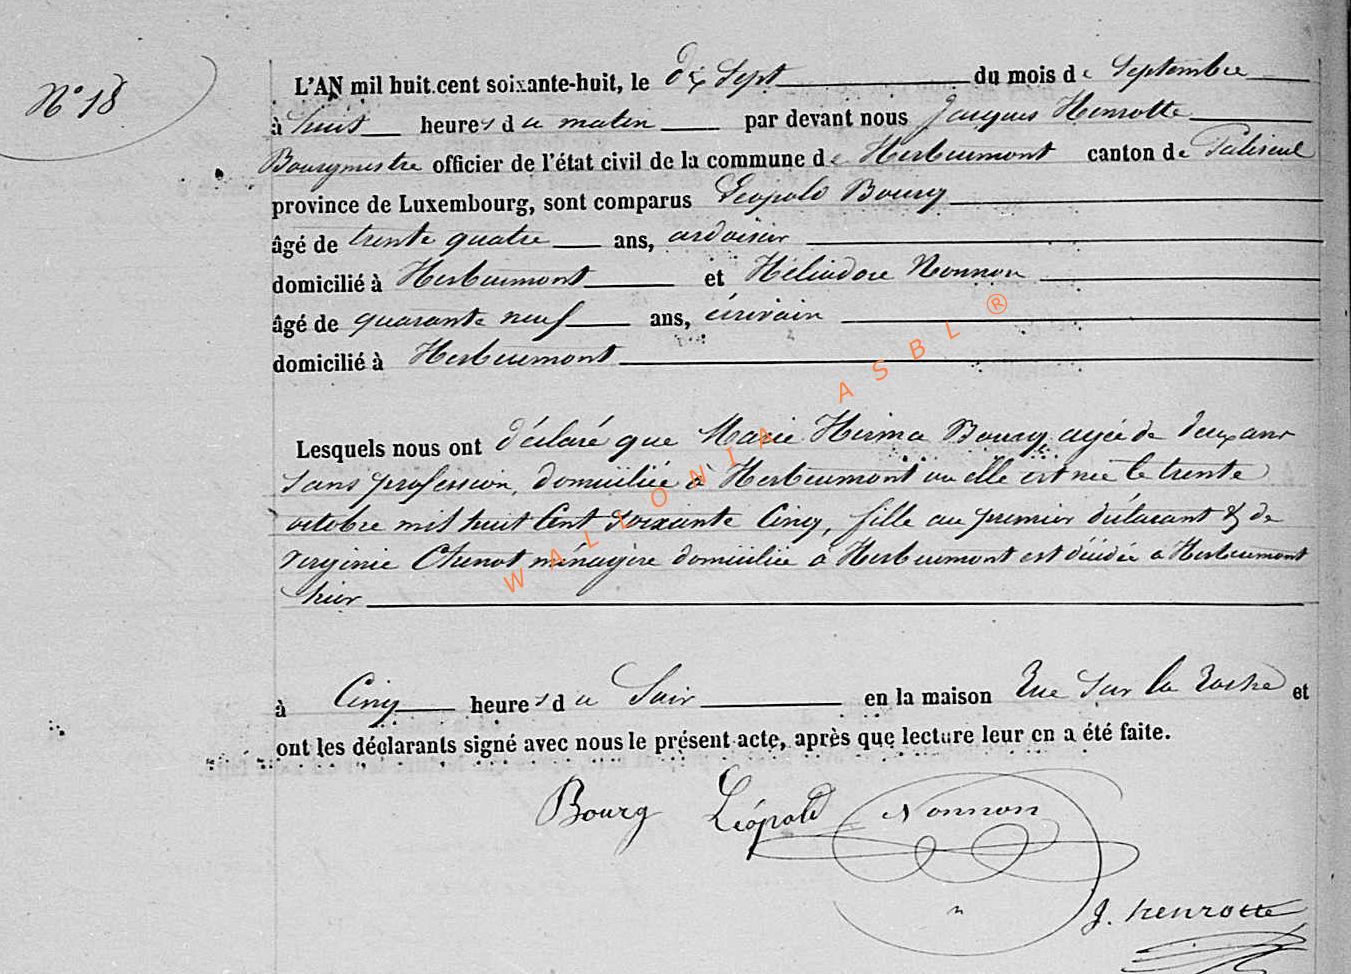 N° 18
L'AN mil huit cent soixante-huit, le dix sept du mois de Septembre
à huit heures du matin par devant nous Jacques Henrotte
Bourgmestre officier de l'état civil de la commune de Herbeumont canton de Paliseul
province de Luxembourg, sont comparus Léopold Bourg
âgé de trente quatre ans, ardoisier
domicilié à Herbeumont et Héliodore Nonnon
âgé de quarante neuf ans, écrivain
domicilié à Herbeumont
Lesquels nous ont déclaré que Marie Hirma Bourg, agée de deux ans
sans profession, domiciliée à Herbeumont ou elle est née le trente
octobre mil huit Cent Soixante Cinq, fille au premier déclarant & de
Virginie Chenot ménagère domiciliée à Herbeumont est décédée à Herbeumont
hier
à Cinq heures du Soir en la maison Rue Sur la Roche et
ont les déclarants signé avec nous le présent acte, après que lecture leur en a été faite.
Bourg Léopold Nonnon
J. henrotte
WALLONIA ASBL ®